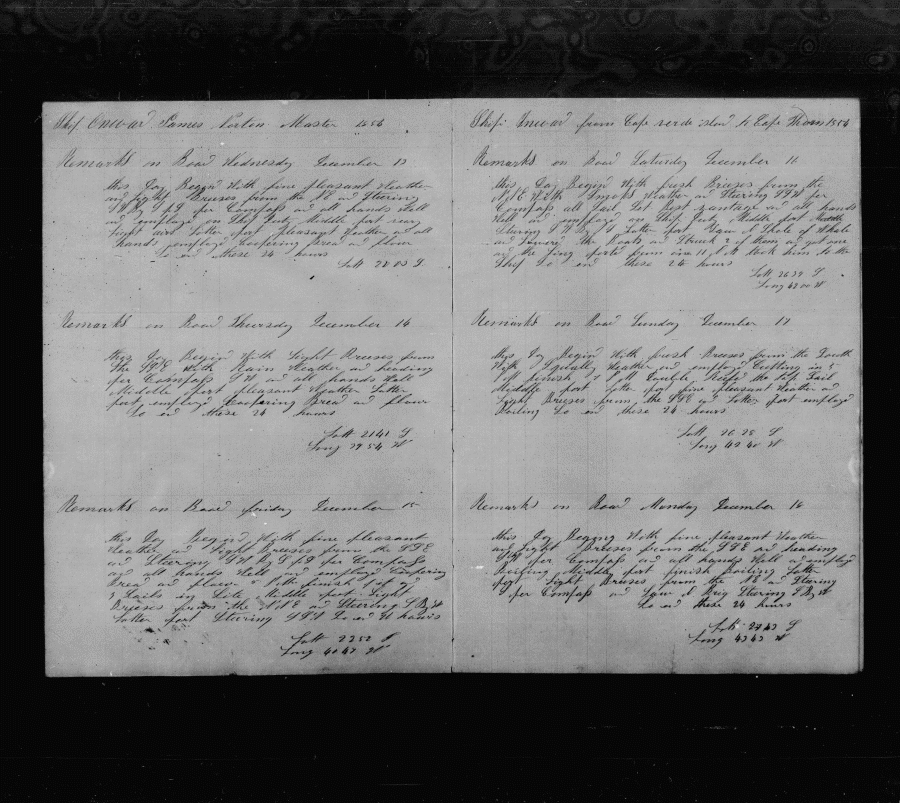 Ship Onward James Master 1856
Remarks on Board Wednesday December 13
this Day Begins With fine pleasant Weather
and Light Breeses from the SE and Steering
SW By S per Compass all hands Well
and employd on Ship Duty Middle part very
Light airs Latter part pleasant Weather and all
hands employd Coopering Bread and flour
So end these 24 hours
Latt 20 03 S
Remarks on Board Thursday December 14
this Day Begins With Light Breeses from
the SSE With Rain Weather and heading
per Compass SW and all hands Well
Middle part pleasant Weather Latter
part employd Coopering Bread and flour
So end these 24 hours
Latt 21 41 S
Long 39 54 W
Remarks on Board friday December 15
this Day Begins With fine pleasant
Weather and Light Breeses from the SSE
and Steering SW By S per Compass
and all hands Well and employd Coopering
Bread and flour finish
Middle part Light
Breeses from the NNE and Steering S By W
Latter part Steering SSW So end 24 hours
Latt 23 52 S
Long 40 47 W
Ship Onward from Cape verde to Cape Horn 1856
Remarks on Board Saturday December 16
this Day Begins With fresh Breeses from the
NNE With Smoky Weather and Steering SSW per
Compass all Sail Set to best advantage and all hands
Well and employd on Ship Duty Middle part
Steering SW By S Latter part Saw A Shole of Whale
and Lowerd the Boats and Struck 2 of them and got one
and the ring parted from one took him to the
Ship So end these 24 hours
Latt 26 39 S
Long 42 00 W
Remarks on Board Sunday December 17
this Day Begins With fresh Breeses from the South
With Squally Weather and employd Cutting in
finish Reeft the Top Sail
Middle part Latter part fine pleasant Weather and
Light Breeses from the SSE and Latter part employd
Boiling So end these 24 hours
Latt 26 28 S
Long 42 40 W
Remarks on Board Monday December 18
this Day Begins With fine pleasant Weather
and Light Breeses from the SSE and heading
SW per Compass and all hands Well and employd
Boiling Middle part finish Boiling Latter
part Light Breeses from the NE and Steering
S per Compass and Saw A Brig Steering S By W
So end these 24 hours
Latt 27 43 S
Long 43 43 W